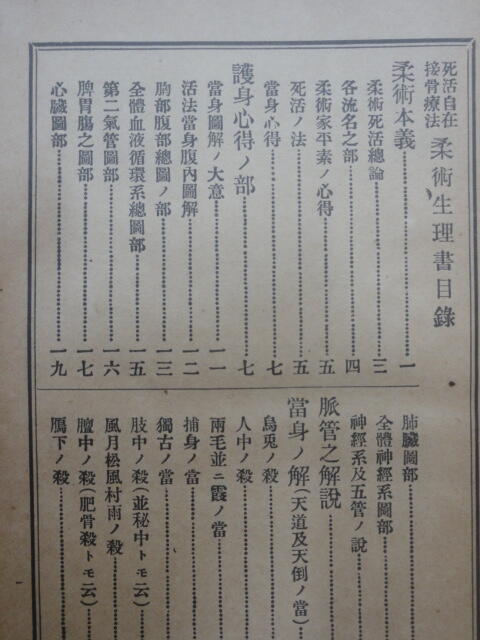 死活自在
接骨療法
柔術生理書目錄
柔術本義 一
柔術死活總論 三
各流名之部 四
柔術家平素ノ心得 五
死活ノ法 五
當身心得 七
護身心得ノ部 七
當身圖解ノ大意 一一
活法當身腹內圖解 一二
胸部腹部總圖ノ部 一三
全體血液循環系總圖部 一五
第二氣管圖部 一六
脾胃腸之圖部 一七
心臟圖部 一九
肺臟圖部
全體神經系圖部
神經系及五管ノ說
脈管之解說
當身ノ解(天道及天倒ノ當)
烏兎ノ殺
人中ノ殺
兩毛並ニ霞ノ當
捕身ノ當
獨古ノ當
肢中ノ殺(並秘中トモ云)
風月松風村雨ノ殺
膻中ノ殺(肥骨殺トモ云)
鴈下ノ殺